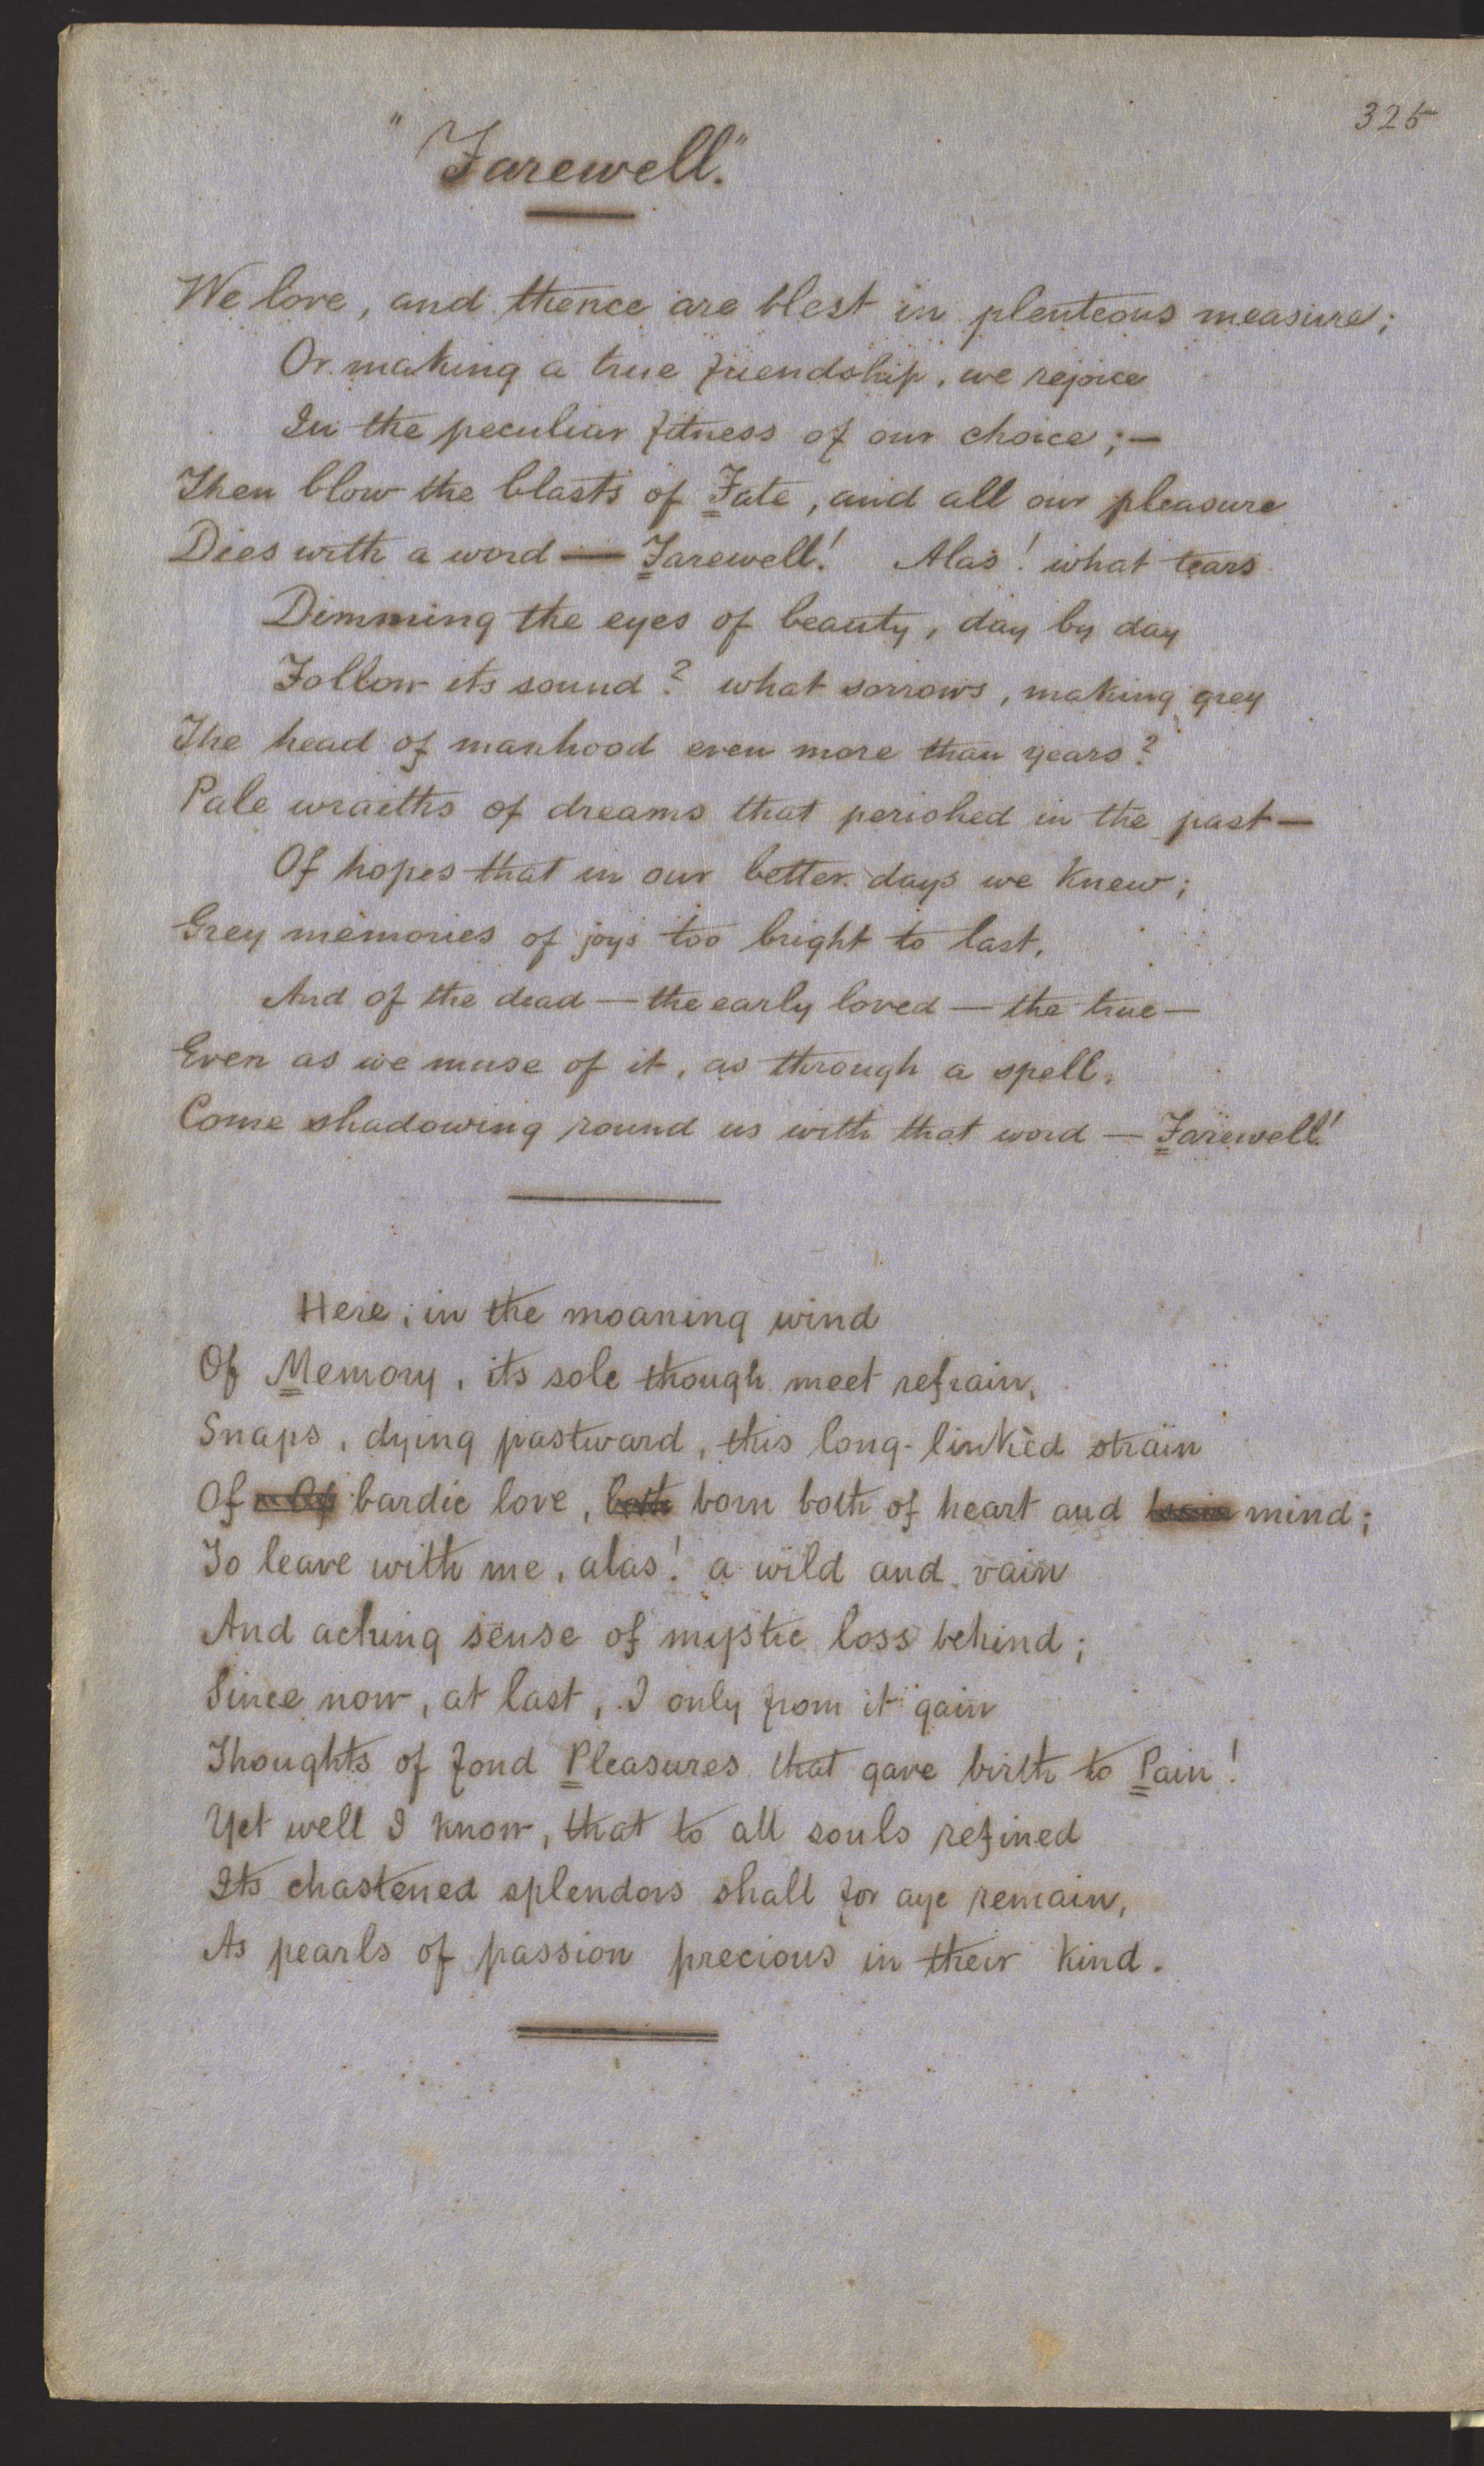 325
"Farewell."
We love, and thence are blest in plenteous measure;
Or making a true friendship, we rejoice
In the peculiar fitness of our choice;—
Then blow the blasts of Fate, and all our pleasure
Dies with a word — Farewell! Alas! what tears
Dimming the eyes of beauty, day by day
Follow its sound? what sorrows, making grey
The head of manhood even more than years?
Pale wraiths of dreams that perished in the past—
Of hopes that in our better days we knew;
Grey memories of joys too bright to last,
And of the dead — the early loved — the true—
Even as we muse of it, as through a spell,
Come shadowing round us with that word — Farewell!
Here, in the moaning wind
Of Memory, its sole though meet refrain,
Snaps, dying pastward, this long-linkèd strain
Of bardic love, both born both of heart and brain mind;
To leave with me, alas! a wild and vain
And aching sense of mystic loss behind;
Since now, at last, I only from it gain
Thoughts of fond Pleasures that gave birth to Pain!
Yet well I know, that to all souls refined
Its chastened splendors shall for aye remain,
As pearls of passion precious in their kind.